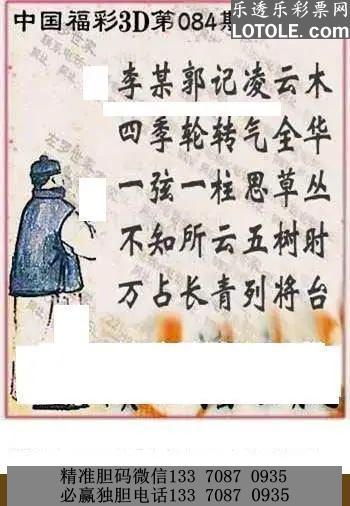 乐透乐彩票网
LOTOLE.COM
中国福彩3D第084期
李某郭记凌云木
四季轮转气全华
一弦一柱思草丛
不知所云五树时
万占长青列将台
精准胆码微信133 7087 0935
必赢独胆电话133 7087 0935